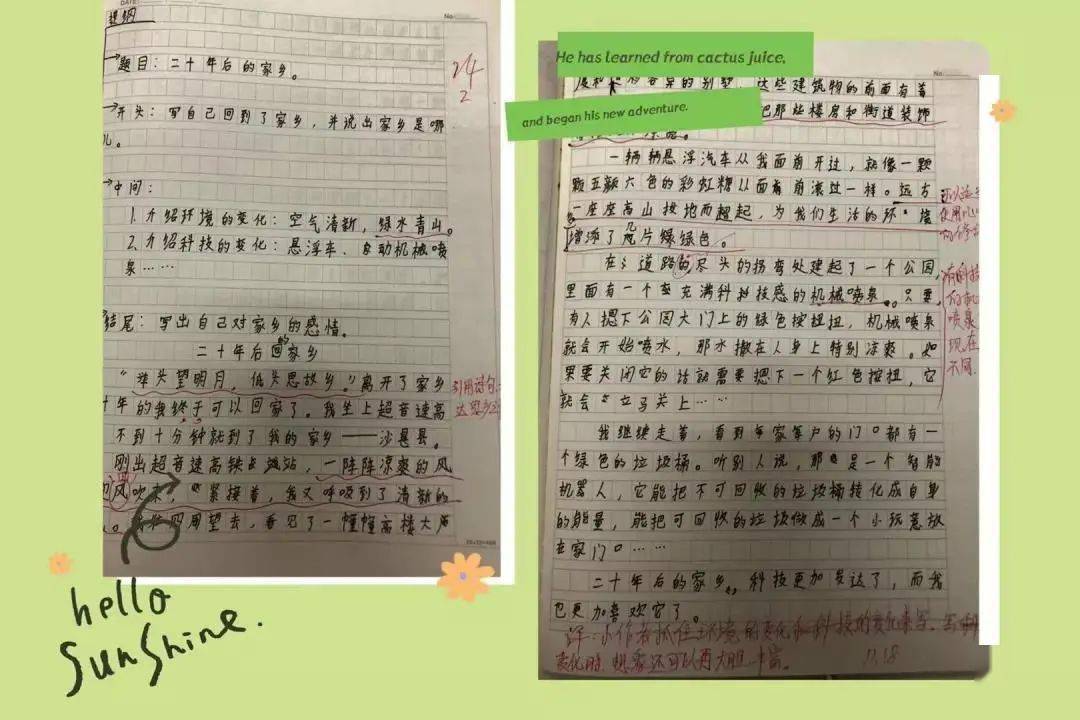 提纲
题目：二十年后的家乡。
开头：写自己回到了家乡，并说出家乡是哪
儿。
中间：
1.介绍环境的变化：空气清新，绿水青山。
2.介绍科技的变化：悬浮车、自动机械喷
泉……
结尾：写出自己对家乡的感情。
二十年后的家乡
"举头望明月，低头思故乡。"离开了家乡
十年的我终于可以回家了。我坐上超音速高
不到十分钟就到了我的家乡——沙县。
刚出超音速高铁站，一阵阵凉爽的风
风吹来，紧接着，我又呼吸到了清新的
四周望去，看见了一幢幢高楼大厦
24
2
引用诗句
hello
sunshine.
He has learned from cactus juice,
and began his new adventure.
No.
的别墅，这些建筑物的前面有着
把那些楼房和街道装饰
一辆辆悬浮汽车从我面前开过，就像一颗
颗五颜六色的彩虹糖从面前滚过一样。远方
一座座高山拔地而起，为我们生活的环境
增添了几片绿色。
在道路的尽头的拐弯处建起了一个公园，
里面有一个充满科技感的机械喷泉。只要
有人摁下公园大门上的绿色按钮扭，机械喷泉
就会开始喷水，那水撒在人身上特别凉爽。如
果要关闭它的话就需要摁下一个红色按扭，它
就会立马关上……
我继续走着，看到每家每户的门口都有一
个绿色的垃圾桶。听别人说，那是一个智能
机器人，它能把不可回收的垃圾桶转化成自身
的能量，能把可回收的垃圾做成一个小玩意放
在家门口……
二十年后的家乡，科技更加发达了，而我
也更加喜欢它了。
喷泉
现在
不同。
评：小作者抓住环境的变化和科技的变化来写，
变化时，想象还可以再大胆、丰富。 11.18